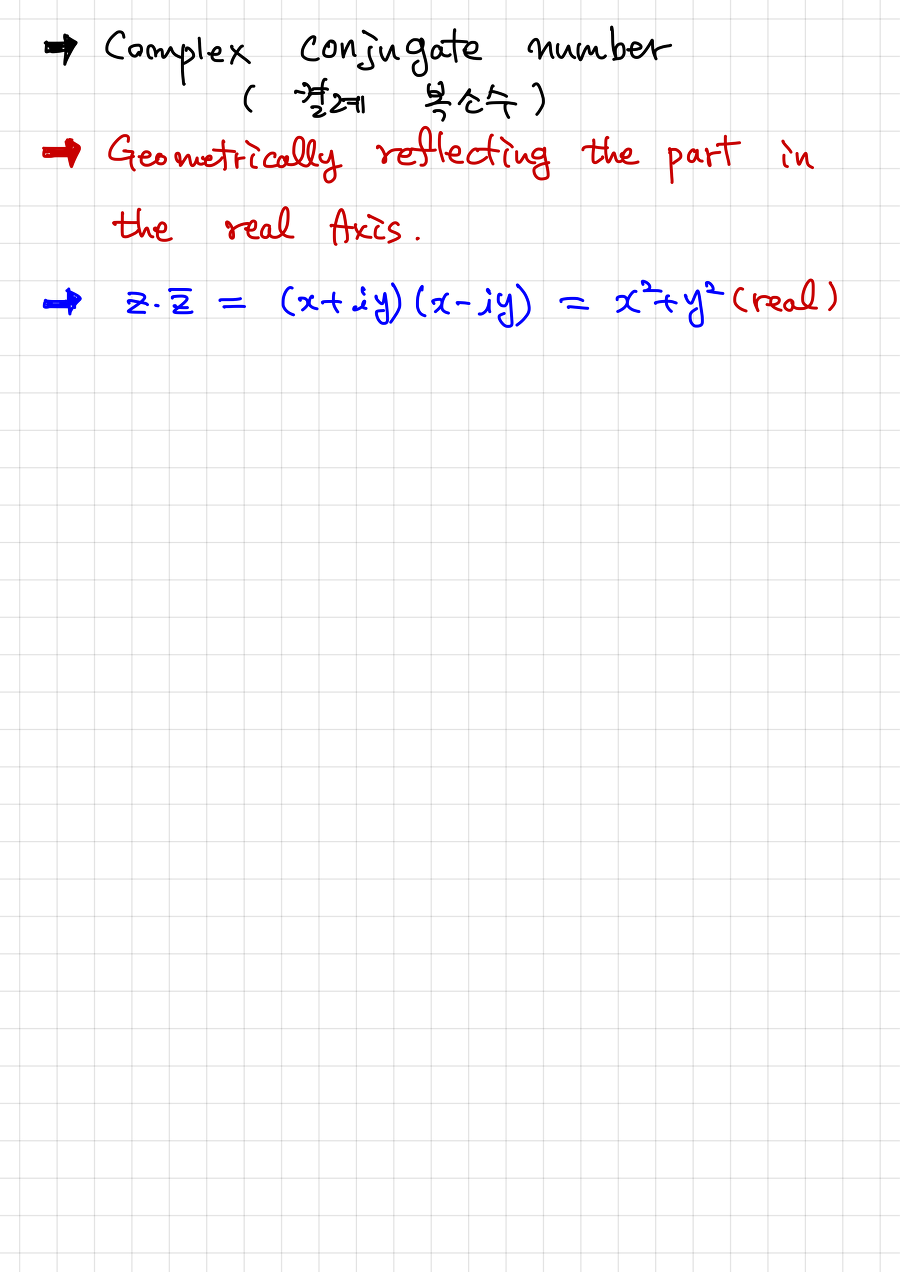 → Complex conjugate number
( 켤레 복소수 )
→ Geometrically reflecting the part in
the real Axis.
→ z·z̅ = (x+iy)(x-iy) = x²+y² (real)